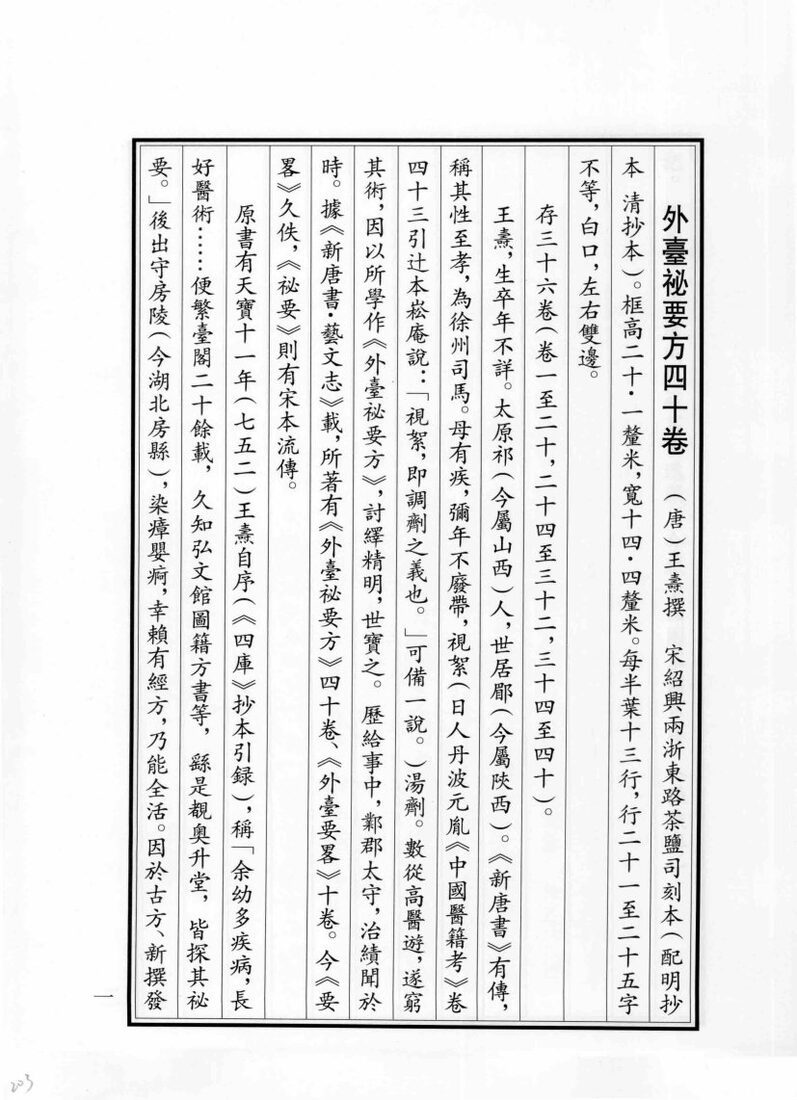 外臺祕要方四十卷　（唐）王燾撰　宋紹興兩浙東路茶鹽司刻本（配明抄
本　清抄本）。框高二十·一釐米，寬十四·四釐米。每半葉十三行，行二十一至二十五字
不等，白口，左右雙邊。
存三十六卷（卷一至二十，二十四至三十二，三十四至四十）。
王燾，生卒年不詳。太原祁（今屬山西）人，世居郿（今屬陝西）。《新唐書》有傳，
稱其性至孝，為徐州司馬。母有疾，彌年不廢帶，視絮（日人丹波元胤《中國醫籍考》卷
四十三引辻本崧庵說：「視絮，即調劑之義也。」可備一說。）湯劑。數從高醫遊，遂窮
其術，因以所學作《外臺祕要方》，討繹精明，世寶之。歷給事中，鄴郡太守，治績聞於
時。據《新唐書·藝文志》載，所著有《外臺祕要方》四十卷、《外臺要畧》十卷。今《要
畧》久佚，《祕要》則有宋本流傳。
原書有天寶十一年（七五二）王燾自序（《四庫》抄本引録），稱「余幼多疾病，長
好醫術……便繁臺閣二十餘載，久知弘文館圖籍方書等，繇是覩奧升堂，皆探其祕
要。」後出守房陵（今湖北房縣），染瘴嬰痾，幸賴有經方，乃能全活。因於古方、新撰發
一
203